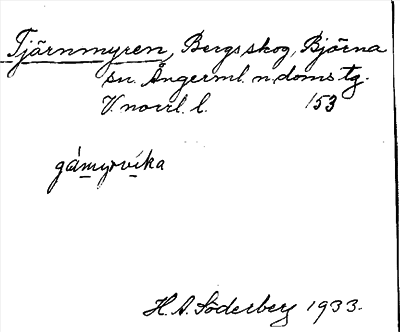 Tjärnmyren, Bergsskog, Björna
sn. Ångerml. n. doms tg.
V. norrl. l. 153
gámyrvíka
H. A. Söderberg 1933.